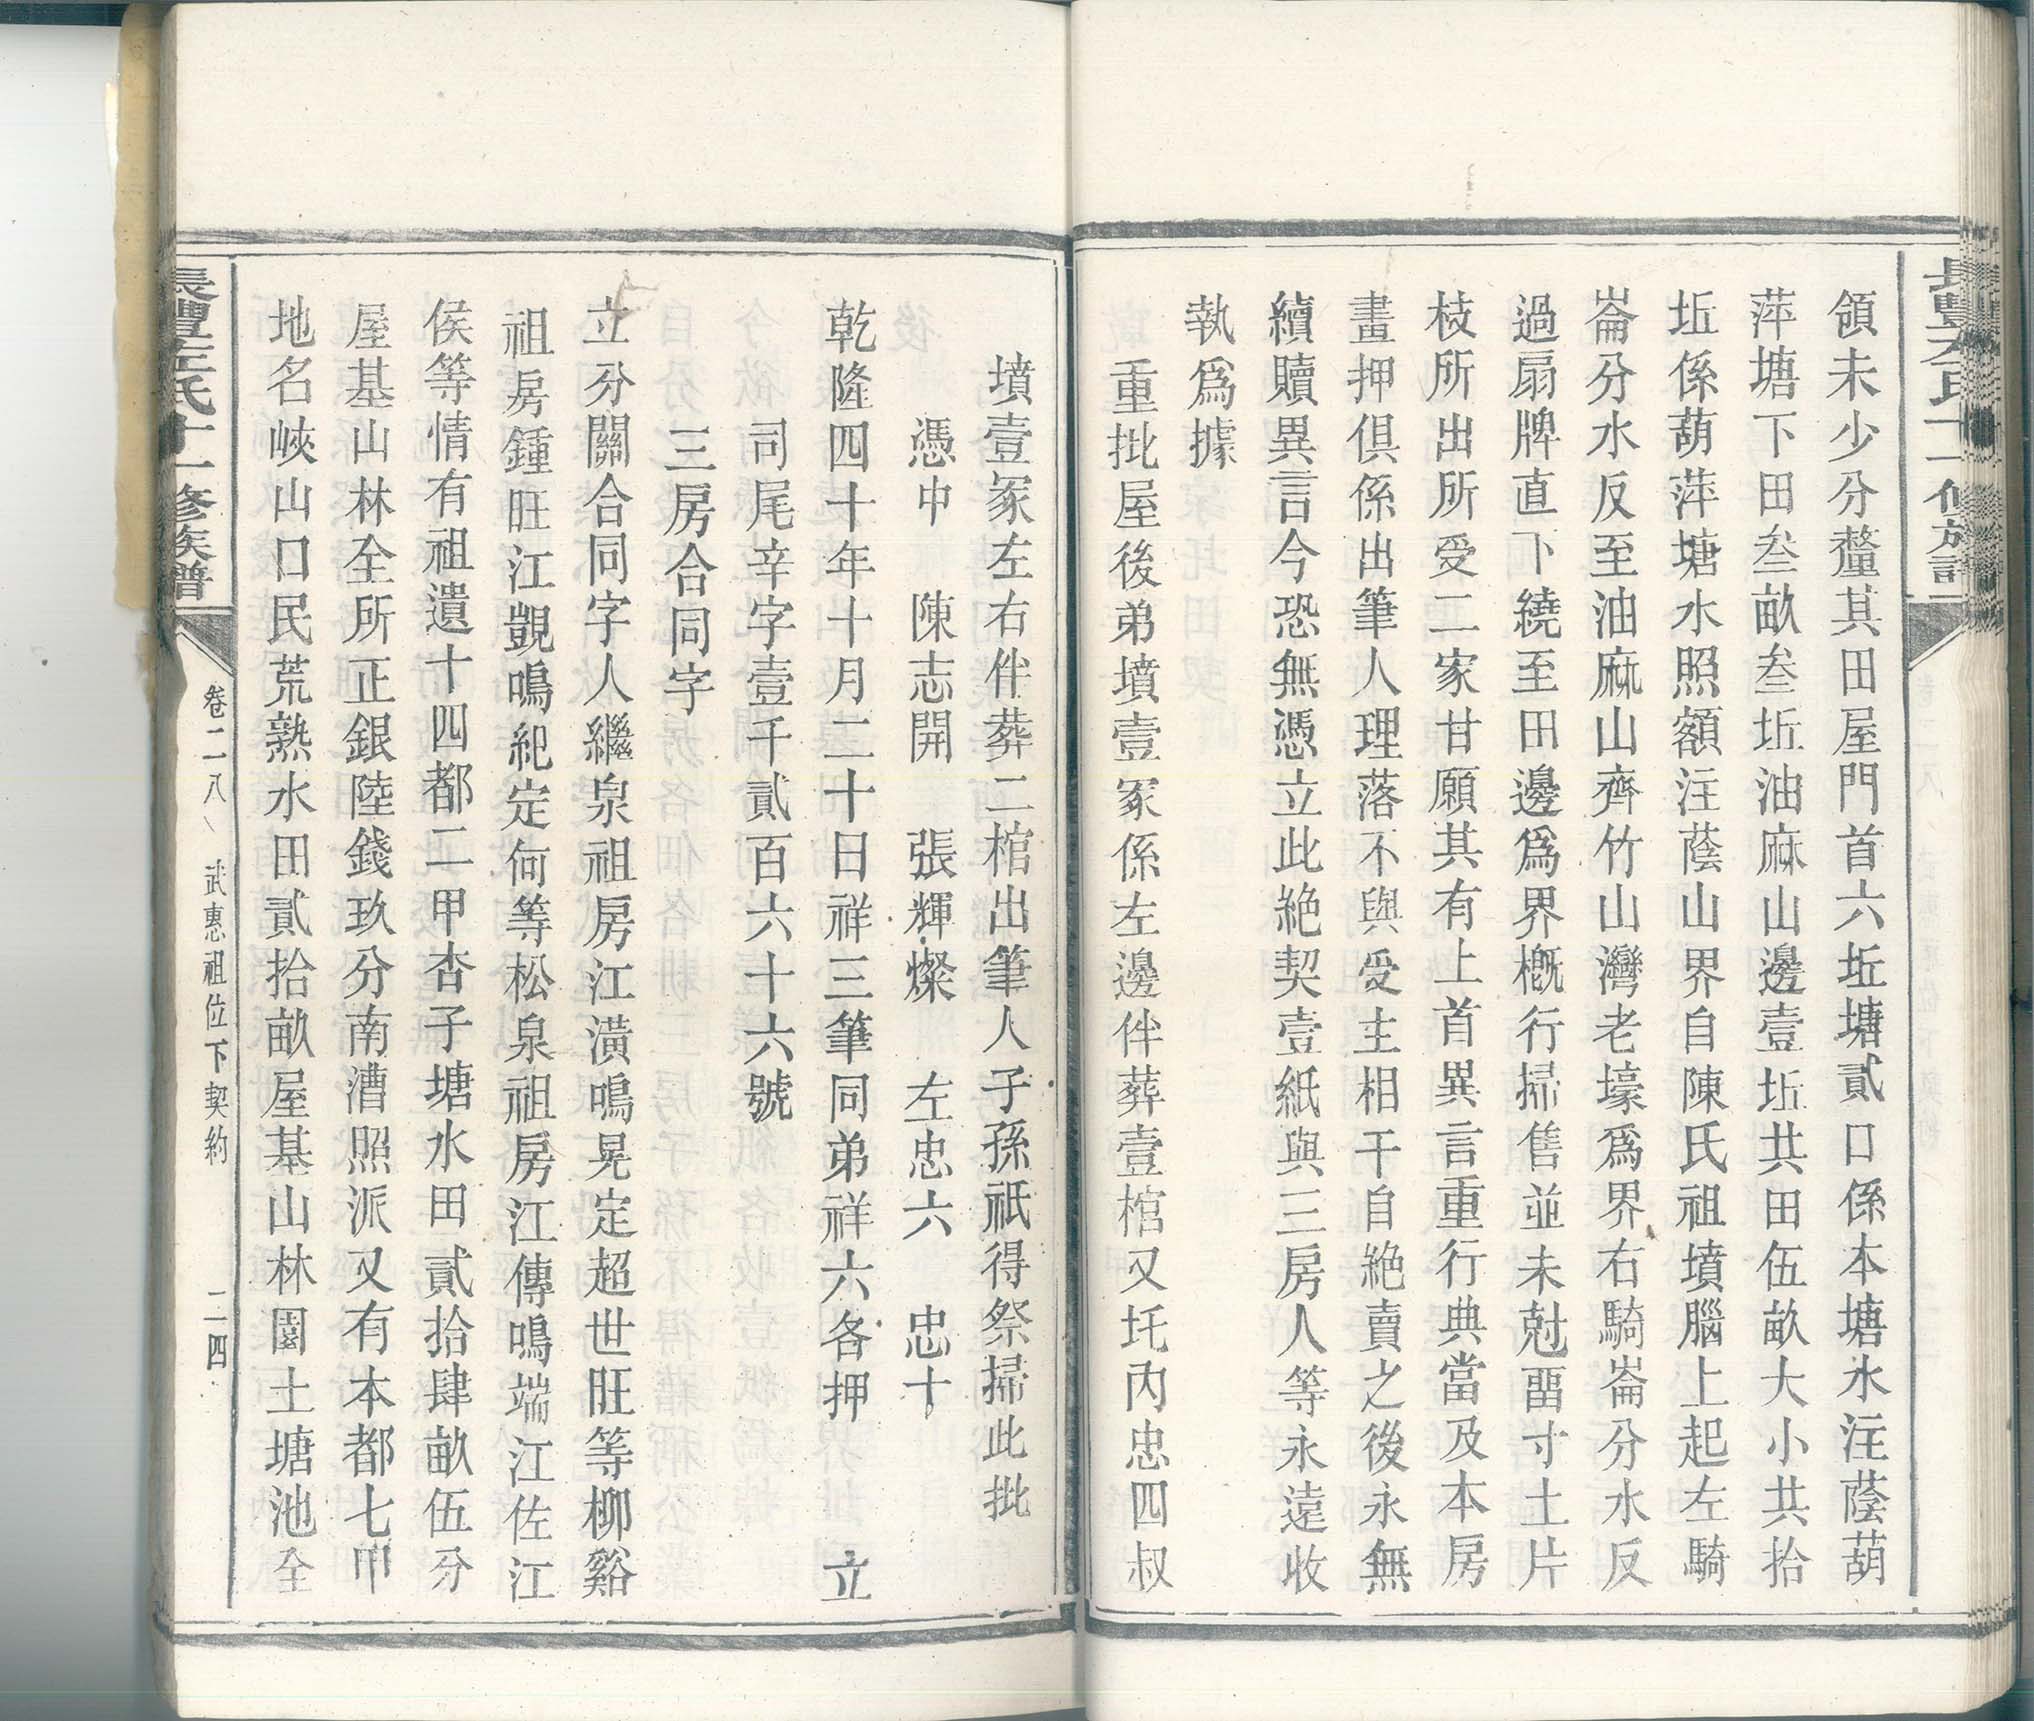 領未少分釐其田屋門首六坵塘貳口係本塘水注蔭葫
萍塘下田叁畝叁坵油麻山邊壹坵共田伍畝大小共拾
坵係葫萍塘水照額注蔭山界自陳氏祖墳腦上起左騎
崙分水反至油麻山齊竹山灣老壕爲界右騎崙分水反
過扇牌直下繞至田邊爲界概行掃售並未尅畱寸土片
枝所出所受二家甘願其有上首異言重行典當及本房
畫押俱係出筆人理落不與受主相干自絶賣之後永無
續贖異言今恐無憑立此絶契壹紙與三房人等永遠收
執爲據
重批屋後弟墳壹冢係左邊伴葬壹棺又圫內忠四叔
墳壹冢左右伴葬二棺出筆人子孫祇得祭掃此批
憑中 陳志開 張輝燦 左忠六 忠十
乾隆四十年十月二十日祥三筆同弟祥六各押 立
司尾辛字壹千貳百六十六號
三房合同字
立分關合同字人繼泉祖房江潢鳴晃定超世旺等柳谿
祖房鍾旺江覬鳴紀定何等松泉祖房江傳鳴端江佐江
侯等情有祖遺十四都二甲杏子塘水田貳拾肆畝伍分
屋基山林全所正銀陸錢玖分南漕照派又有本都七甲
地名峽山口民荒熟水田貳拾畝屋基山林園土塘池全
長豐左氏十一修族譜
卷二八
武惠祖位下契約
二四